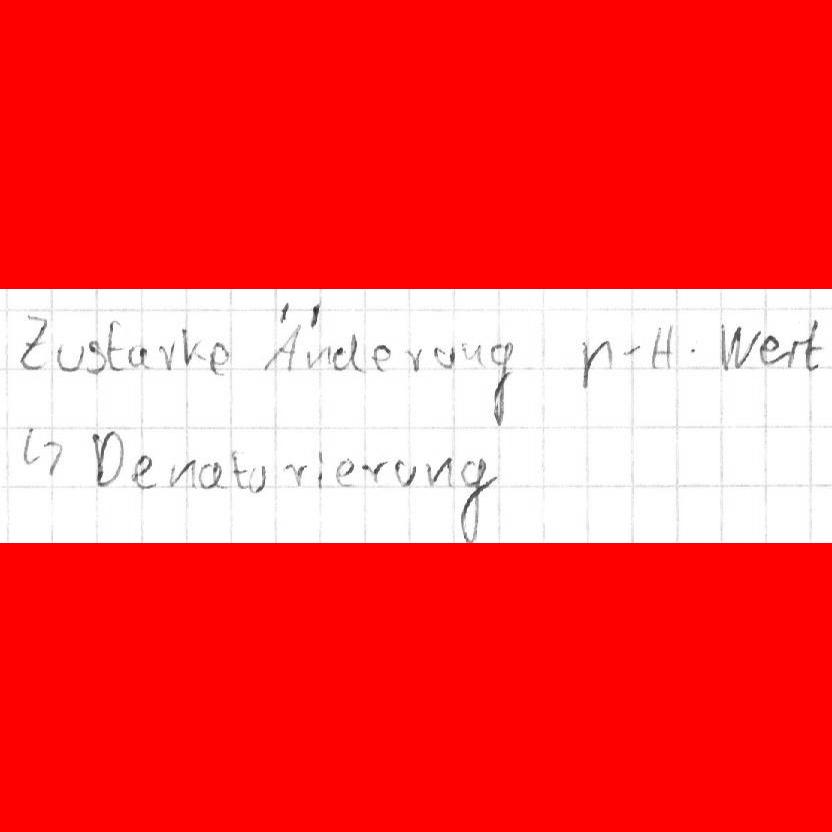 Zustarke Änderung p-H. Wert
↳ Denaturierung